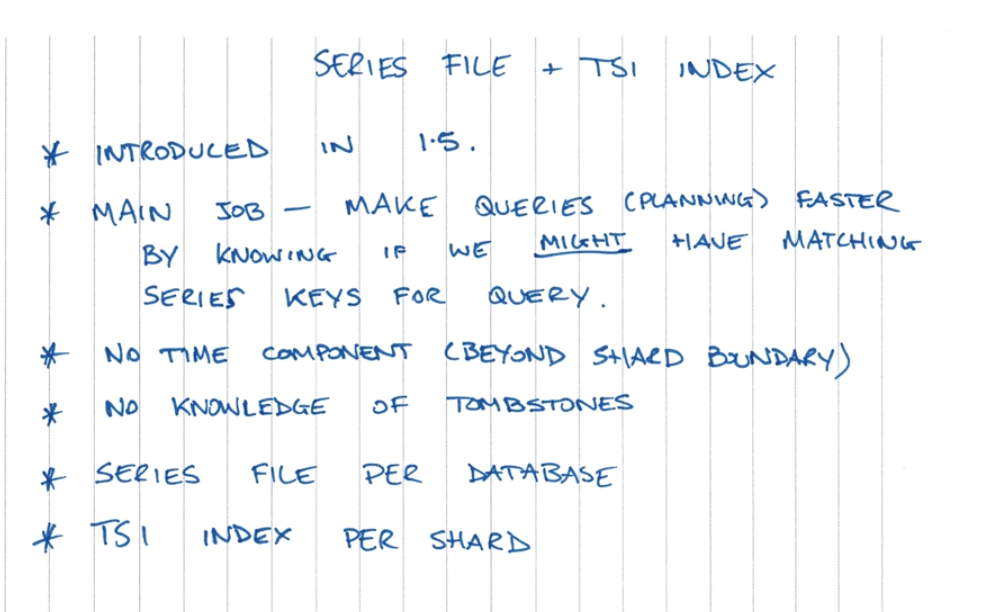 SERIES FILE + TSI INDEX
* INTRODUCED IN 1.5.
* MAIN JOB — MAKE QUERIES (PLANNING) FASTER
BY KNOWING IF WE MIGHT HAVE MATCHING
SERIES KEYS FOR QUERY.
* NO TIME COMPONENT (BEYOND SHARD BOUNDARY)
* NO KNOWLEDGE OF TOMBSTONES
* SERIES FILE PER DATABASE
* TSI INDEX PER SHARD